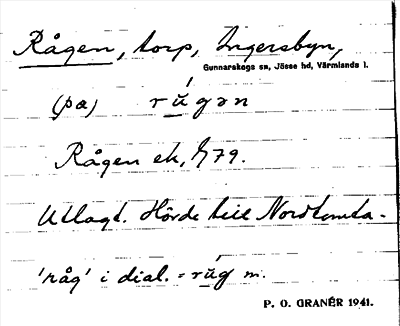 Rågen, torp, Ingersbyn,
Gunnarskogs sn, Jösse hd, Värmlands l.
(på) rúgən
Rågen ek, 1/79.
Utlagt. Hörde till Nordtomta-
'råg' i dial. = rúg m.
P. O. GRANÉR 1941.